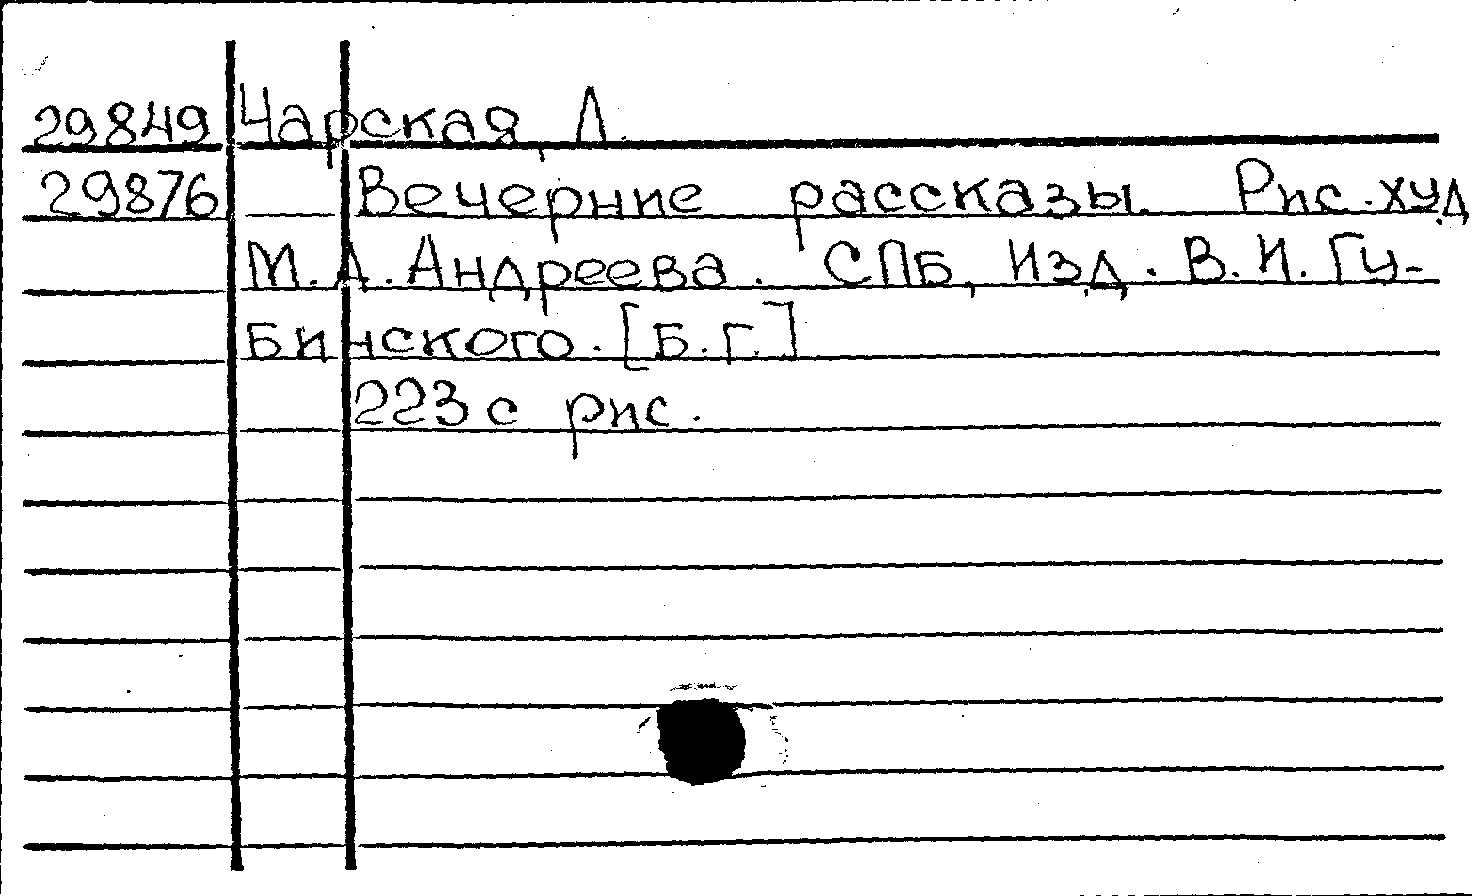 29849 Чарская, Л.
29876 Вечерние рассказы. Рис. худ.
М.А. Андреева. СПБ, Изд. В.И. Гу-
бинского. [Б.Г.]
223 с рис.